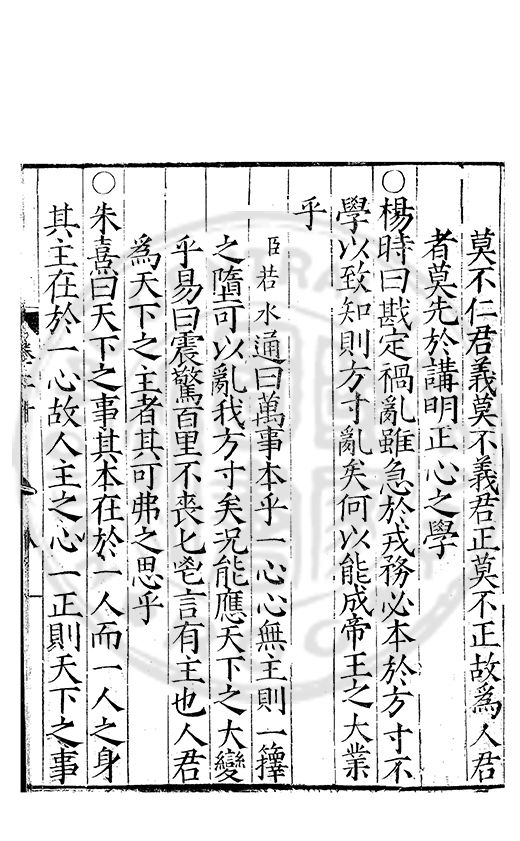 莫不仁君義莫不義君正莫不正故為人君
者莫先於講明正心之學
○楊時曰戡定禍亂雖急於戎務必本於方寸不
學以致知則方寸亂矣何以能成帝王之大業
乎
臣若水通曰萬事本乎一心心無主則一籜
之墮可以亂我方寸矣況能應天下之大變
乎易曰震驚百里不喪匕鬯言有主也人君
為天下之主者其可弗之思乎
○朱熹曰天下之事其本在於一人而一人之身
其主在於一心故人主之心一正則天下之事